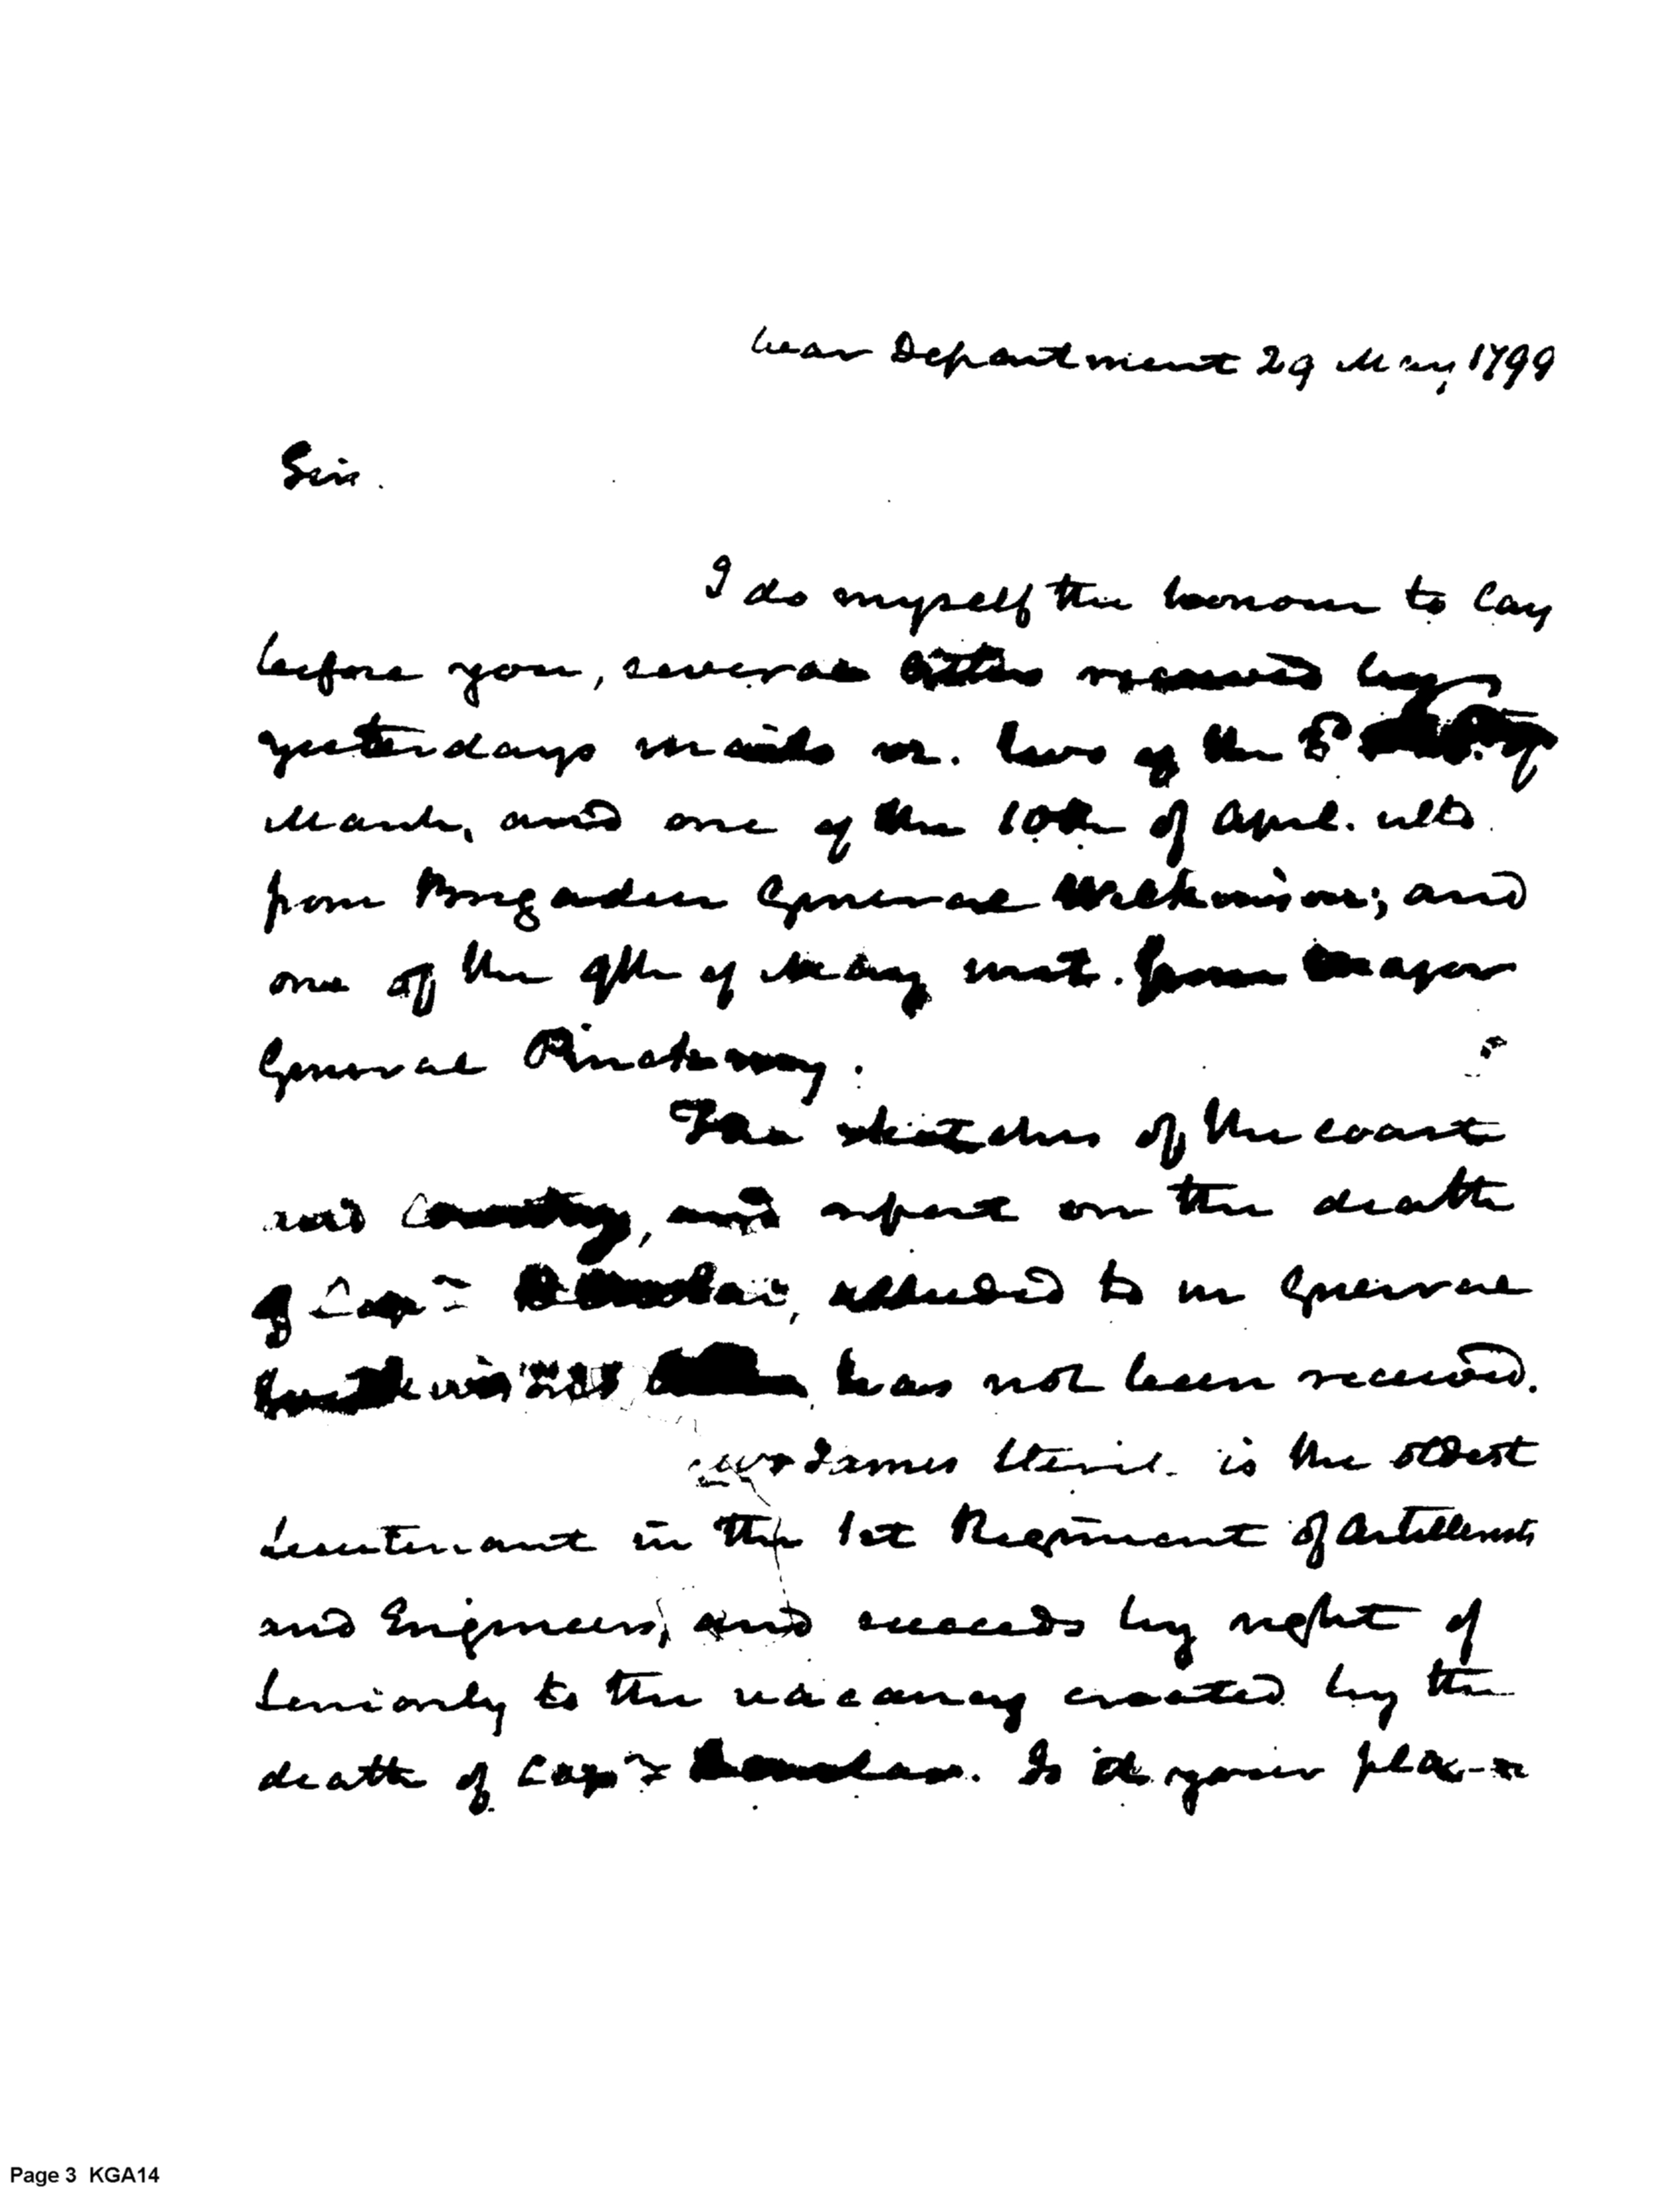 War Department 29 May, 1799
Sir.
I do myself the honour to lay
before you, several letters received by
yesterdays mails viz. two of the 8
March, and one of the 10th of April. ulto.
from Brigadier General Wilkinson; and
one of the 9th of May inst. from Major
General Pinckney.
The sketches of the coast
and Country, and report on the death
of Capt alluded to in General
has not been received.
James Steril. is the oldest
Lieutenant in the 1st Regiment of Artillerists
and Engineers, and succeeds by right of
Seniority to the vacancy created by the
death of Capt. Is it your pleas-e
Page 3 KGA14